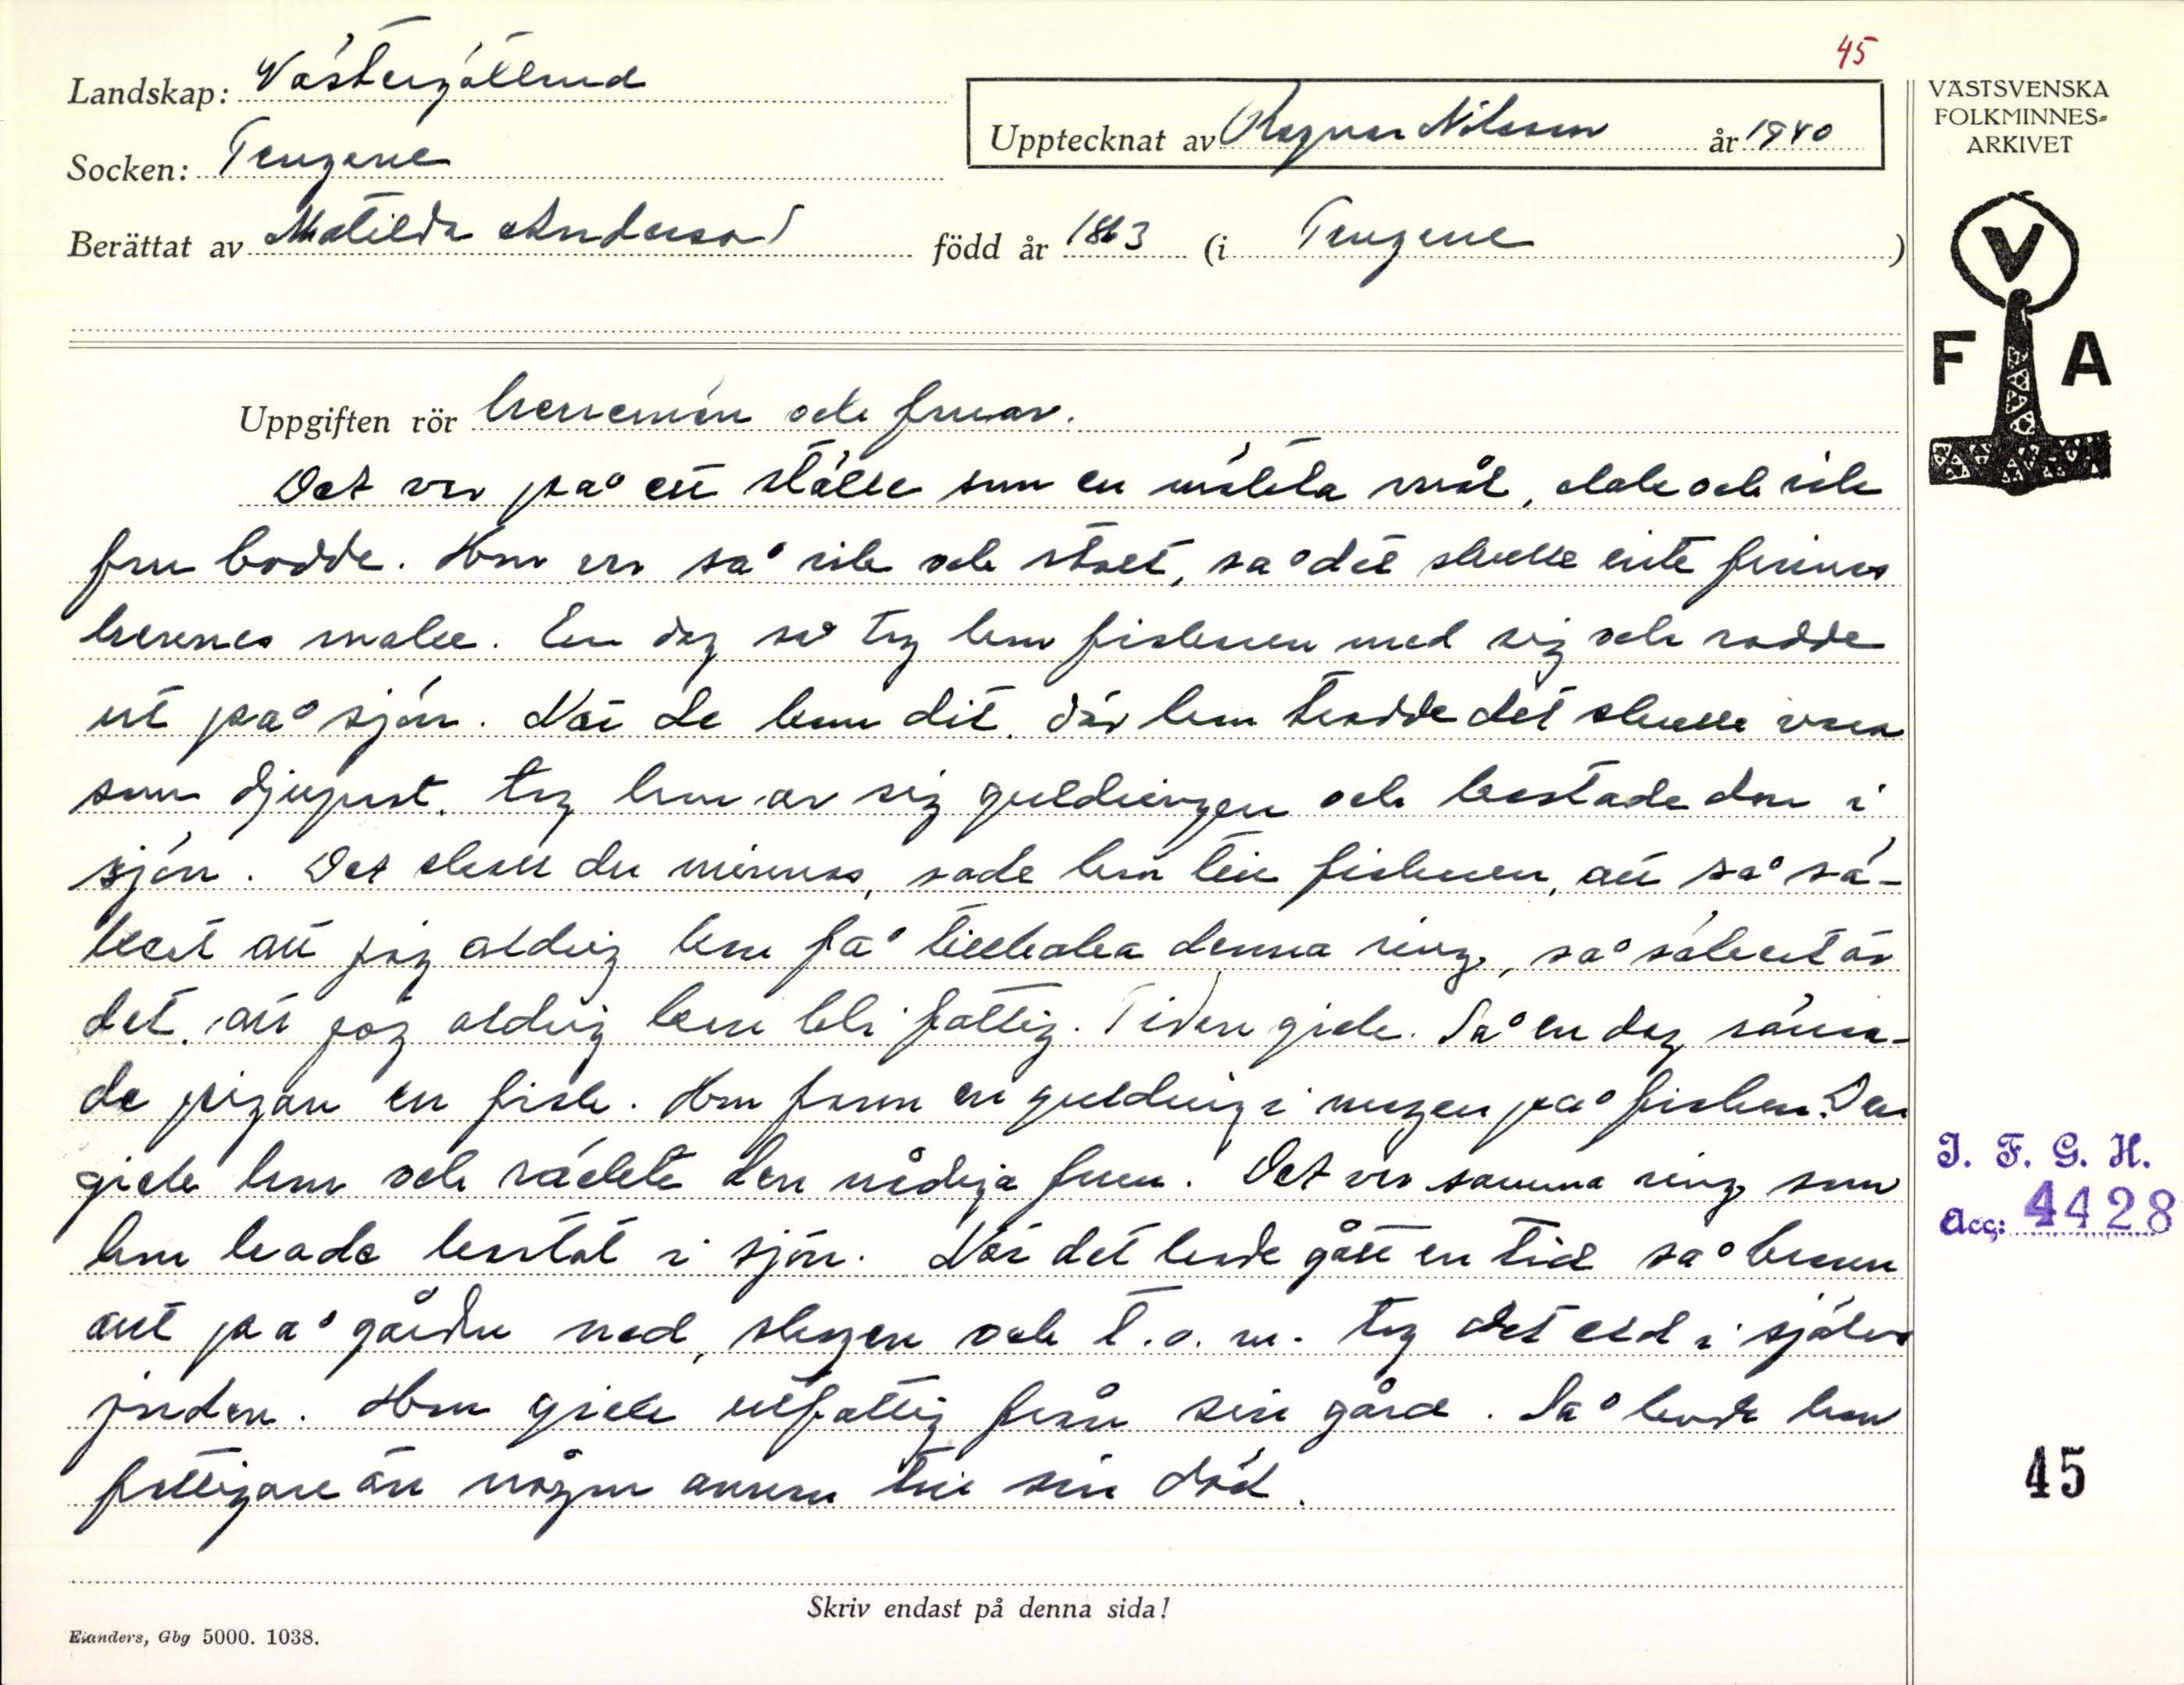 45
Landskap: Västergötland
Upptecknat av Ragnar Nilsson år 1940
Socken: Trugene
Berättat av Matilda Andersson född år 1863 (i Trugene)
VÄSTSVENSKA
FOLKMINNES-
ARKIVET
V
F A
Uppgiften rör herremän och fruar.
Det var på ett ställe som en mäkta snål, elak och rik
fru bodde. Hon var så rik och stolt, så det skulle inte finnas
hennes make. En dag så tog hon fiskaren med sig och rodde
ut på sjön. När de kom dit, där hon trodde det skulle vara
som djupast, tog hon av sig guldringen och kastade den i
sjön. Det skall du minnas, sade hon till fiskaren, att så sä-
kert att jag aldrig kan få tillbaka denna ring, så säkert är
det, att jag aldrig kan bli fattig. Tiden gick. Så en dag rensa-
de pigan en fisk. Hon fann en guldring i magen på fisken. Den
gick hon och räckte den nådiga frun. Det var samma ring som
hon hade kastat i sjön. När det hade gått en tid så brann
allt på gården ned, skogen och t.o.m. tog det eld i själva
jorden. Hon gick utfattig från sin gård. Så levde hon
fattigare än någon annan till sin död.
I. F. G. H.
Acc: 4428
45
Skriv endast på denna sida!
Elanders, Gbg 5000. 1038.